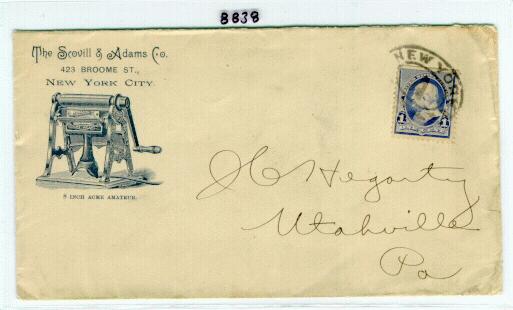 8838
The Scovill & Adams Co.
423 BROOME ST.,
NEW YORK CITY
8 INCH ACME AMATEUR.
NEW YORK
1 1
JC Hegarty
Utahville
Pa